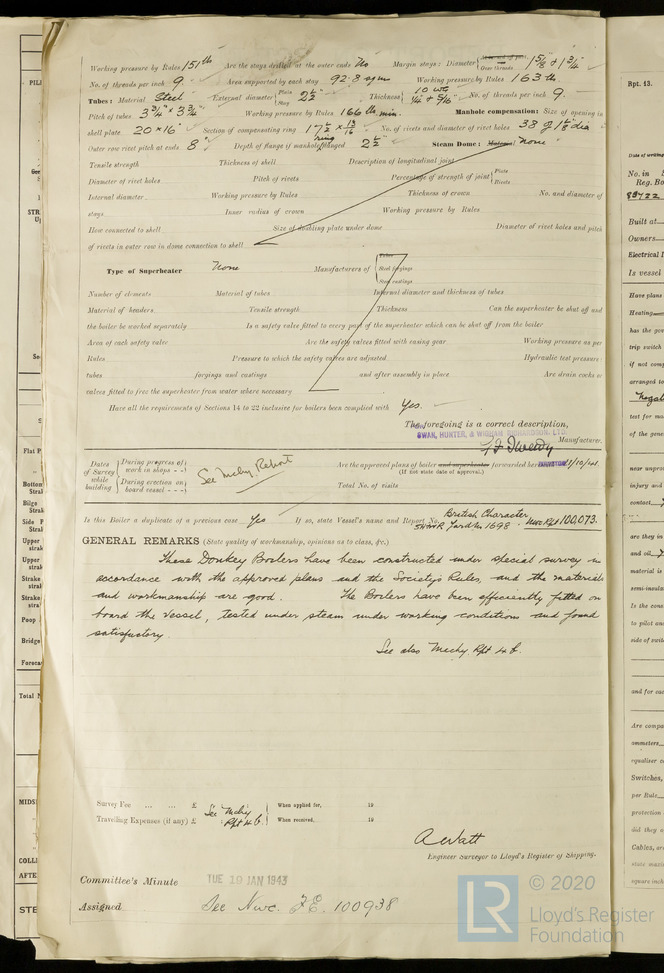 Working pressure by Rules 151 lbs Are the stays drilled at the outer ends No Margin stays: Diameter 1 5/8" + 1 3/4"
No. of threads per inch 9 Area supported by each stay 92.8 sq ins Working pressure by Rules 163 lbs
Tubes: Material Steel External diameter { Plain Stay 2 1/2" Thickness { 10 WG 1/4" + 5/16" No. of threads per inch 9
Pitch of tubes 3 3/4" x 3 3/4" Working pressure by Rules 166 lbs min. Manhole compensation: Size of opening in
shell plate 20" x 16" Section of compensating ring 17 1/2" x 13/16" No. of rivets and diameter of rivet holes 38 of 1 1/8" dia
Outer row rivet pitch at ends 8" Depth of flange if manhole flanged ring 2 1/2" Steam Dome: Material None
Tensile strength Thickness of shell Description of longitudinal joint
Diameter of rivet holes Pitch of rivets Percentage of strength of joint { Plate Rivets
Internal diameter Working pressure by Rules Thickness of crown No. and diameter of
stays Inner radius of crown Working pressure by Rules
How connected to shell Size of doubling plate under dome Diameter of rivet holes and pitch
of rivets in outer row in dome connection to shell
Type of Superheater None Manufacturers of { Tubes Steel forgings Steel castings
Number of elements Material of tubes Internal diameter and thickness of tubes
Material of headers Tensile strength Thickness Can the superheater be shut off and
the boiler be worked separately Is a safety valve fitted to every part of the superheater which can be shut off from the boiler
Area of each safety valve Are the safety valves fitted with easing gear Working pressure as per
Rules Pressure to which the safety valves are adjusted Hydraulic test pressure:
tubes forgings and castings and after assembly in place Are drain cocks or
valves fitted to free the superheater from water where necessary
Have all the requirements of Sections 14 to 22 inclusive for boilers been complied with Yes.
The foregoing is a correct description,
SWAN, HUNTER, & WIGHAM RICHARDSON, LTD.
Manufacturer.
Dates of Survey while building { During progress of work in shops - - During erection on board vessel - - - } See Mchy. Report Are the approved plans of boiler and superheater forwarded herewith
(If not state date of approval.)
Total No. of visits
Is this Boiler a duplicate of a previous case Yes If so, state Vessel's name and Report No. British Character
SH&WR Yard No 1698 - Nwc Rpt 100,073.
GENERAL REMARKS (State quality of workmanship, opinions as to class, &c.)
These Donkey Boilers have been constructed under special survey in
accordance with the approved plans and the Society's Rules, and the materials
and workmanship are good. The Boilers have been efficiently fitted on
board the vessel, tested under steam under working conditions and found
satisfactory.
See also Mchy Rpt 4b.
Survey Fee ... ... £ See Mchy Rpt 4b. When applied for, 19
Travelling Expenses (if any) £ When received, 19
A Watt
Engineer Surveyor to Lloyd's Register of Shipping.
Committee's Minute TUE 19 JAN 1943
Assigned See Nwc. F.E. 100938
LR © 2020
Lloyd's Register
Foundation
Rpt. 13.
No. in
Reg. Bo
88722
Built at
Owners
Electrical I
Is vessel
Have plans
Heating
has the gov
trip switch
if not comp
arranged to
test for ma
of the gene
near unprot
injury and
contact
are they in
and oil
material is
semi-insula
Is the cons
to pilot and
side of swit
and for eac
Are compa
ammeters
equaliser v
Switches,
per Rule
protection
did they o
Cables, are
square inch